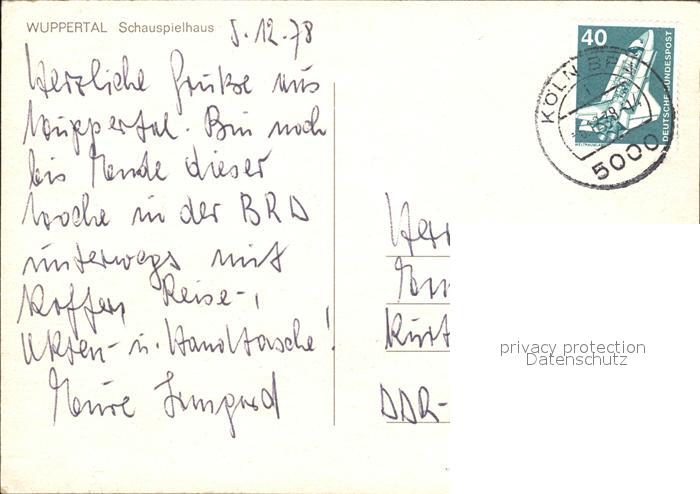 WUPPERTAL Schauspielhaus
5.12.78
Herzliche Grüße aus
Wuppertal. Bin noch
bis Ende dieser
Woche in der BRD
unterwegs mit
Koffer, Reise-,
Akten- u. Handtasche!
Eure Irmgard
40
DEUTSCHE BUNDESPOST
KÖLN BPA
5000
Herr
Kurt
DDR-
privacy protection
Datenschutz